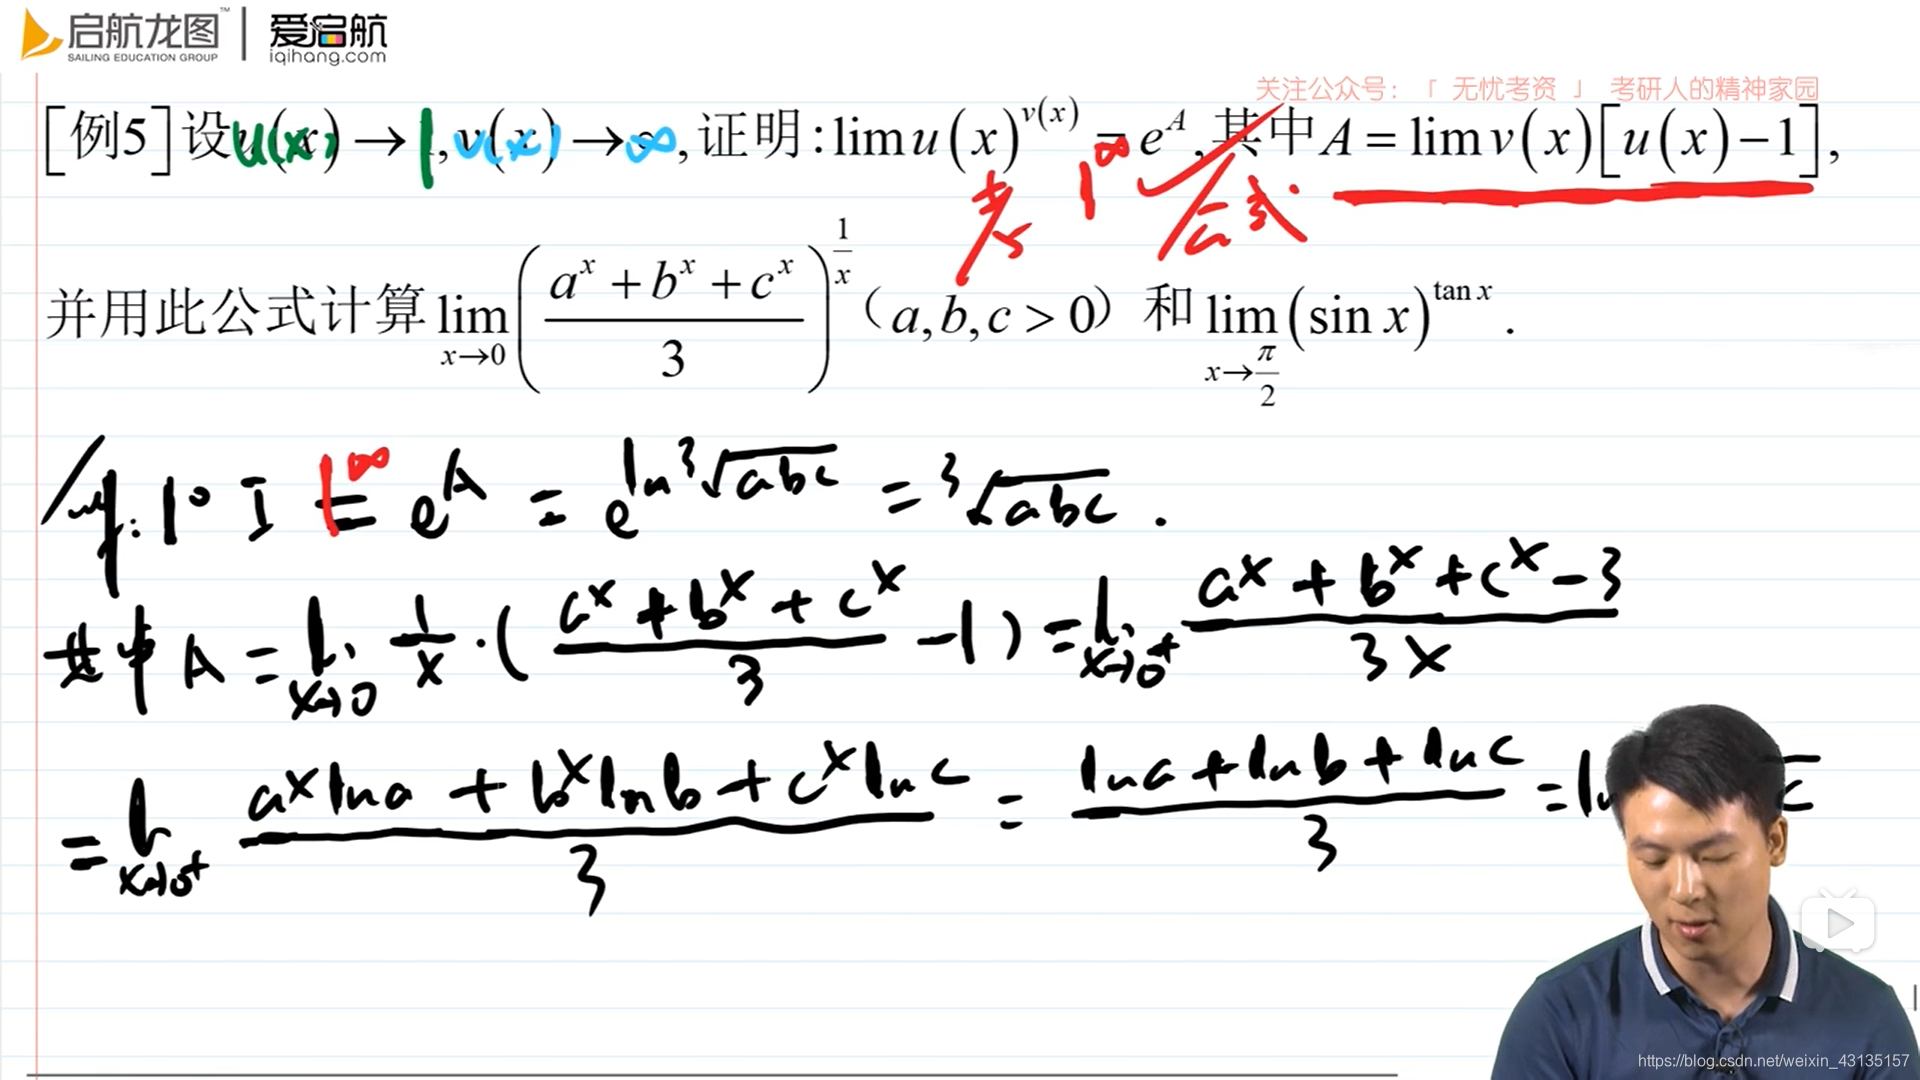 启航龙图™ | 爱启航
SAILING EDUCATION GROUP iqihang.com
关注公众号:「 无忧考资 」 考研人的精神家园
[例5]设u(x)→1,v(x)→∞,证明:lim u(x)^{v(x)} = e^A,其中A = lim v(x)[u(x)−1],
1^∞
考 公式
并用此公式计算 lim_{x→0} ((a^x + b^x + c^x)/3)^{1/x} (a,b,c > 0) 和 lim_{x→π/2} (sin x)^{tan x} .
1° I = e^A = e^{ln ³√abc} = ³√abc .
1^∞
其中 A = lim_{x→0} 1/x · ( (a^x + b^x + c^x)/3 − 1 ) = lim_{x→0⁺} (a^x + b^x + c^x − 3)/(3x)
= lim_{x→0⁺} (a^x ln a + b^x ln b + c^x ln c)/3 = (ln a + ln b + ln c)/3 =
https://blog.csdn.net/weixin_43135157